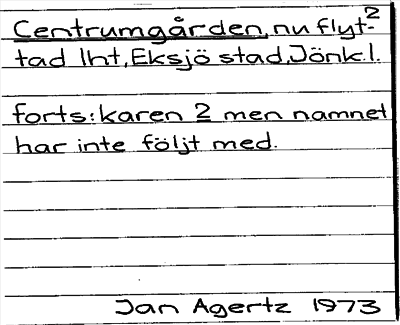 2
Centrumgården, nu flyt-
tad lht, Eksjö stad, Jönk.l.
forts: karen 2 men namnet
har inte följt med.
Jan Agertz 1973